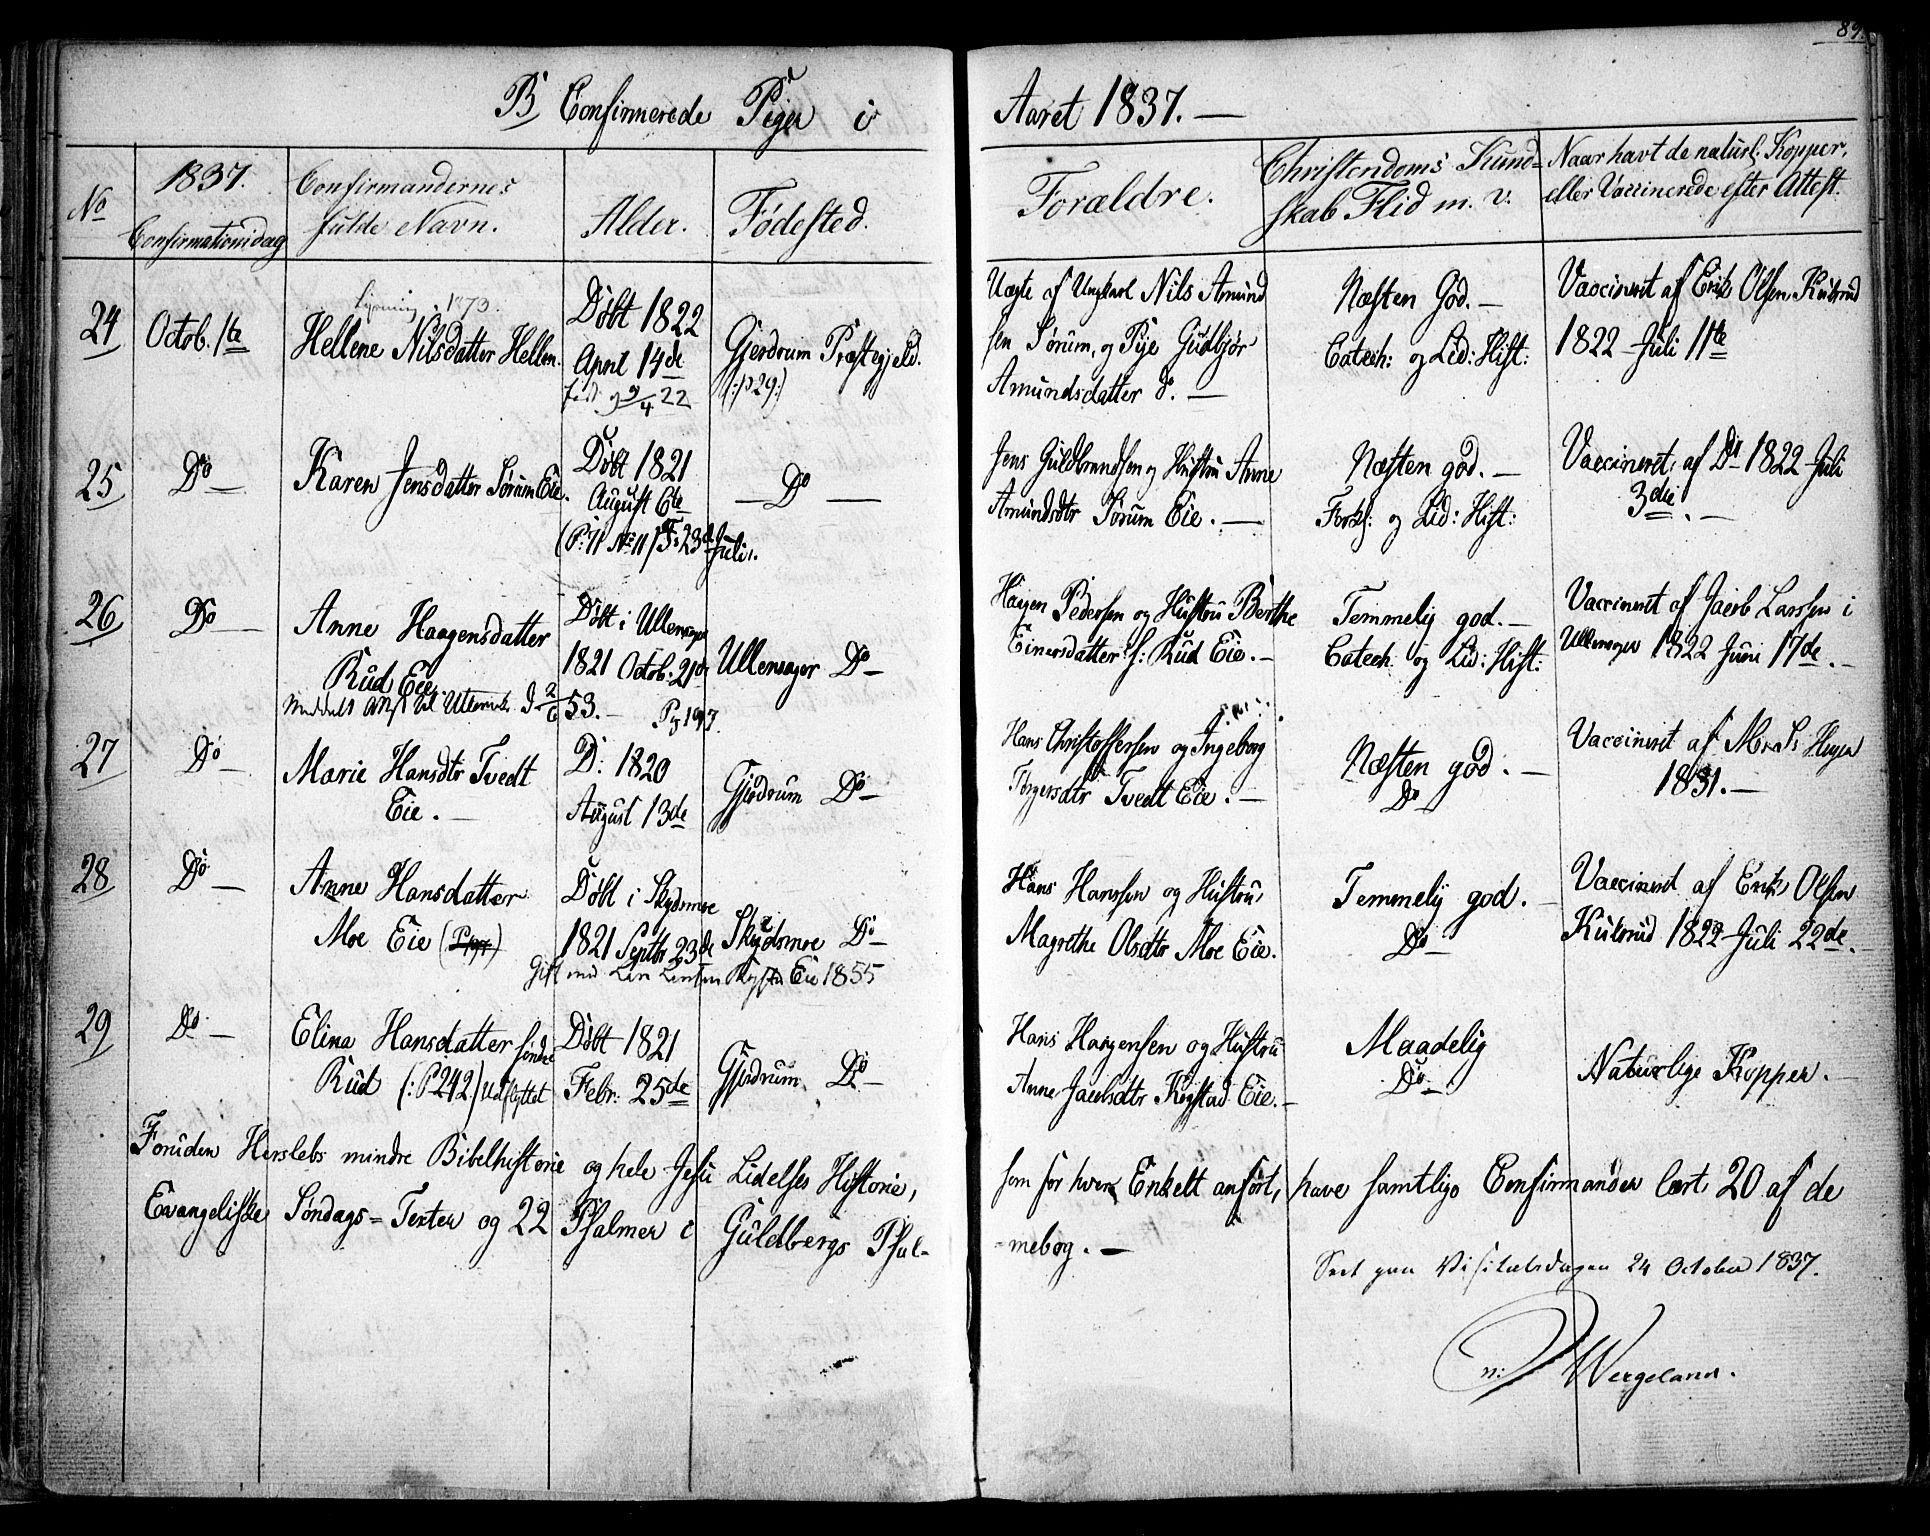 89.
B Confirmerede Piger i Aaret 1837. —
No
1837.
Confirmationsdag
Confirmandernes
fulde Navn.
Alder.
Fødested.
Forældre.
Christendoms Kund-
skab Flid m. v.
Naar havt de naturl. Kopper,
eller Vaccinerede efter Attest.
24
Octob. 1te
1873.
Hellene Nilsdatter Hellen.
Døbt 1822
April 14de
9/4 22
Gjerdrum Præstegjeld.
(:p 29:)
Uægte af Ungkarl Nils Amund
sen Sørum, og Pige Gudbjør
Amundsdatter do. —
Næsten God. —
Catech: og Lid: Hist:
Vaccineret af Erik Olsen Kulsrud
1822 Juli 11te
25
Do —
Karen Jensdatter Sørum Eie.
Døbt 1821
August 6te
(P: 11 No 11) F: 23de Juli.
— Do —
Jens Guldbrandsen og Hustru Anne
Amundsdtr Sørum Eie. —
Næsten god. —
Forkl: og Lid: Hist:
Vaccineret af Do 1822 Juli
3die. —
26
Do —
Anne Haagensdatter
Rud Eie.
Døbt i Ullensager
1821 Octob: 21de
Ullensager Do —
Meddelt Att til Ullensak. d 2/6 53. —
Pg 197.
Haagen Pedersen og Hustru Berthe
Einersdatter f: Rud Eie. —
Temmelig god. —
Catech: og Lid: Hist:
Vaccineret af Jacob Larssen i
Ullensager 1822 Juni 17de. —
27
Do —
Marie Hansdtr Tvedt
Eie. —
D: 1820
August 13de
Gjerdrum Do —
Hans Christoffersen og Ingeborg
Torgersdtr Tvedt Eie. —
Næsten god. —
Do
Vaccineret af Mad.
1831. —
28
Do —
Anne Hansdatter
Moe Eie
Døbt i Skydsmoe
1821 Septbr 23de
Skydsmoe Do —
Gift med Eie 1855
Hans Hanssen og Hustru
Magrethe Olsdtr Moe Eie.
Temmelig god. —
Do —
Vaccineret af Erik Olsen
Kulsrud 1822 Juli 22de.
29
Do —
Elina Hansdatter søndre
Rud (:P 242:) Udflyttet
Døbt 1821
Febr: 25de
Gjerdrum Do —
Hans Haagensen og Hustru
Anne Jacobsdtr Kogstad Eie. —
Maadelig
Do —
Naturlige Kopper. —
Foruden Herslebs mindre Bibelhistorie og hele Jesu Lidelses Historie, som for hver Enkelt anført, have samtlige Confirmander lært 20 af de
Evangeliske Søndags=Texter og 22 Psalmer i Guldbergs Psal-
-mebog. —
Seet paa Visitatsdagen 24 October 1837.
N: Wergeland.